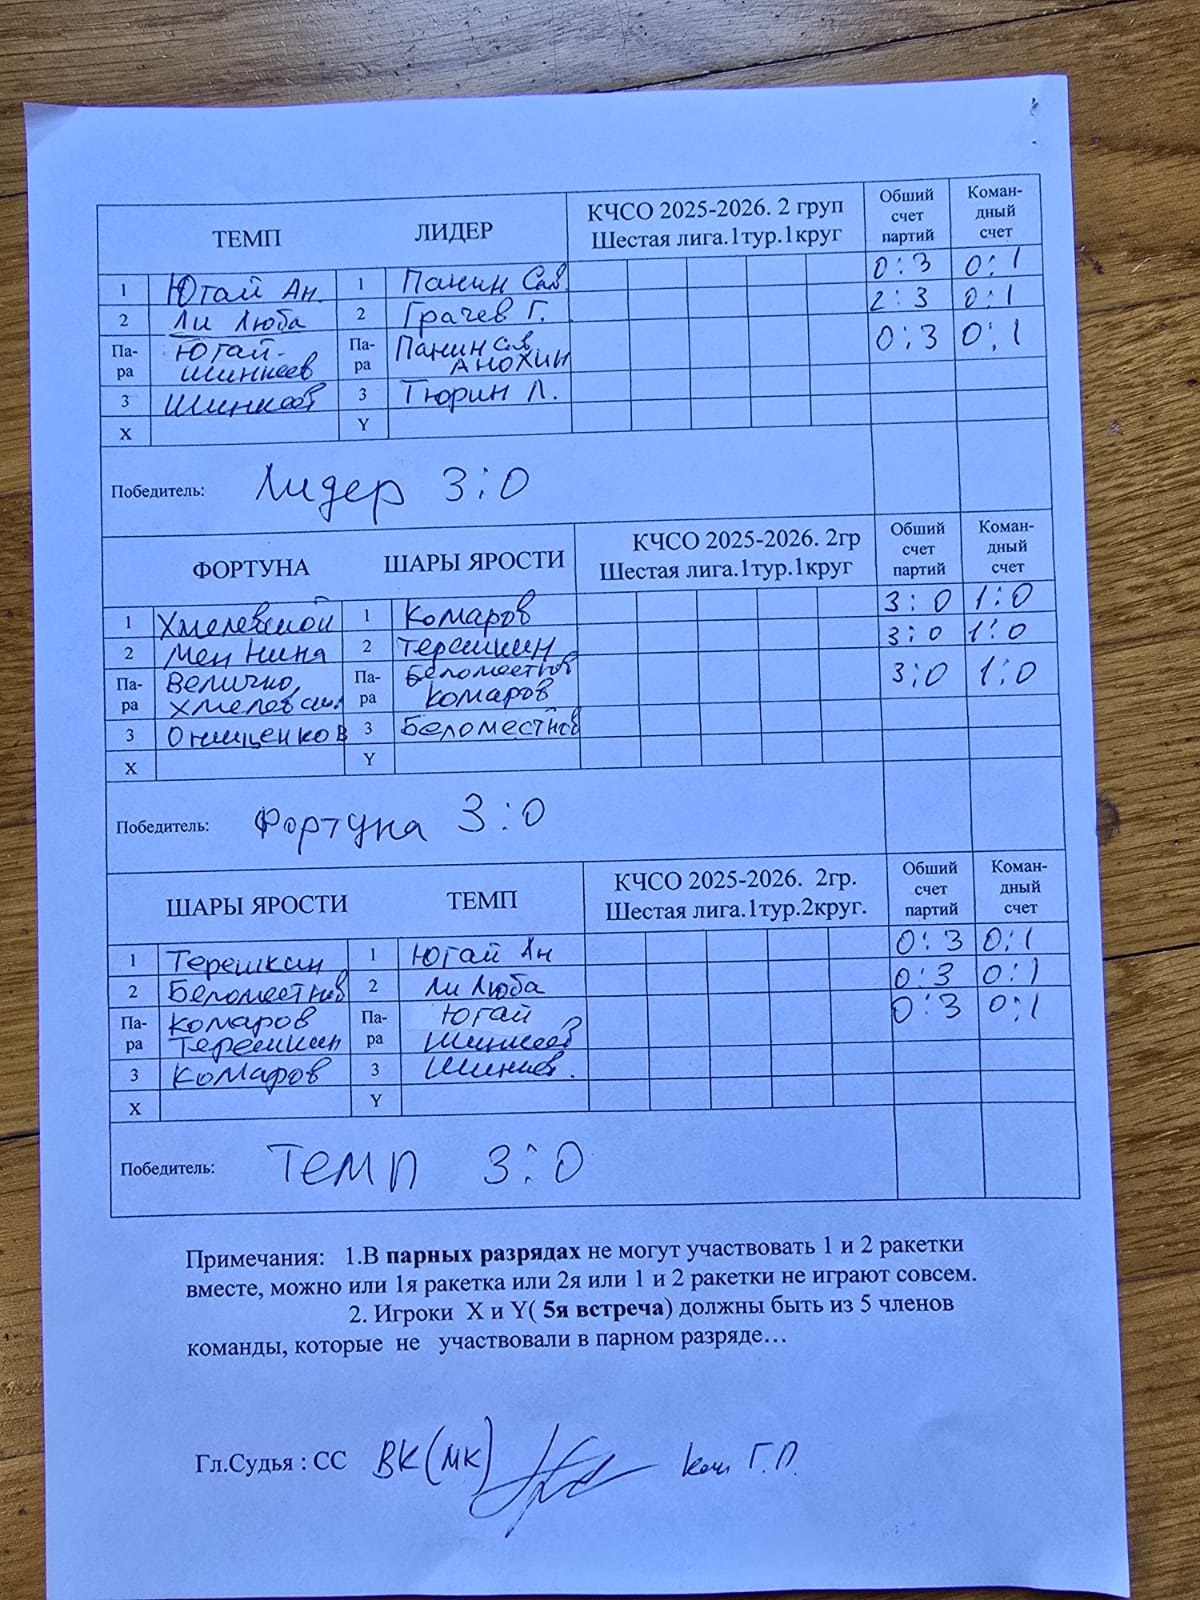 ТЕМП ЛИДЕР КЧСО 2025-2026. 2 груп Шестая лига.1тур.1круг Обший счет партий Коман-дный счет
1 Югай Ан. 1 Панин Сав. 0:3 0:1
2 Ли Люба 2 Грачев Г. 2:3 0:1
Па-ра Югай- Шинкеев Па-ра Панин Сав. Анохин 0:3 0:1
3 Шинкеев 3 Тюрин Л.
X Y
Победитель: Лидер 3:0
ФОРТУНА ШАРЫ ЯРОСТИ КЧСО 2025-2026. 2гр Шестая лига.1тур.1круг Обший счет партий Коман-дный счет
1 Хмелевской 1 Комаров 3:0 1:0
2 Мен Нина 2 Терешкин 3:0 1:0
Па-ра Величко, Хмелевск. Па-ра Беломестнов Комаров 3:0 1:0
3 Онищенков 3 Беломестнов
X Y
Победитель: Фортуна 3:0
ШАРЫ ЯРОСТИ ТЕМП КЧСО 2025-2026. 2гр. Шестая лига.1тур.2круг. Обший счет партий Коман-дный счет
1 Терешкин 1 Югай Ан 0:3 0:1
2 Беломестнов 2 Ли Люба 0:3 0:1
Па-ра Комаров Терешкин Па-ра Югай Шинкеев 0:3 0:1
3 Комаров 3
X Y
Победитель: Темп 3:0
Примечания: 1.В парных разрядах не могут участвовать 1 и 2 ракетки
вместе, можно или 1я ракетка или 2я или 1 и 2 ракетки не играют совсем.
2. Игроки X и Y( 5я встреча) должны быть из 5 членов
команды, которые не участвовали в парном разряде…
Гл.Судья : СС ВК(МК) Г.П.